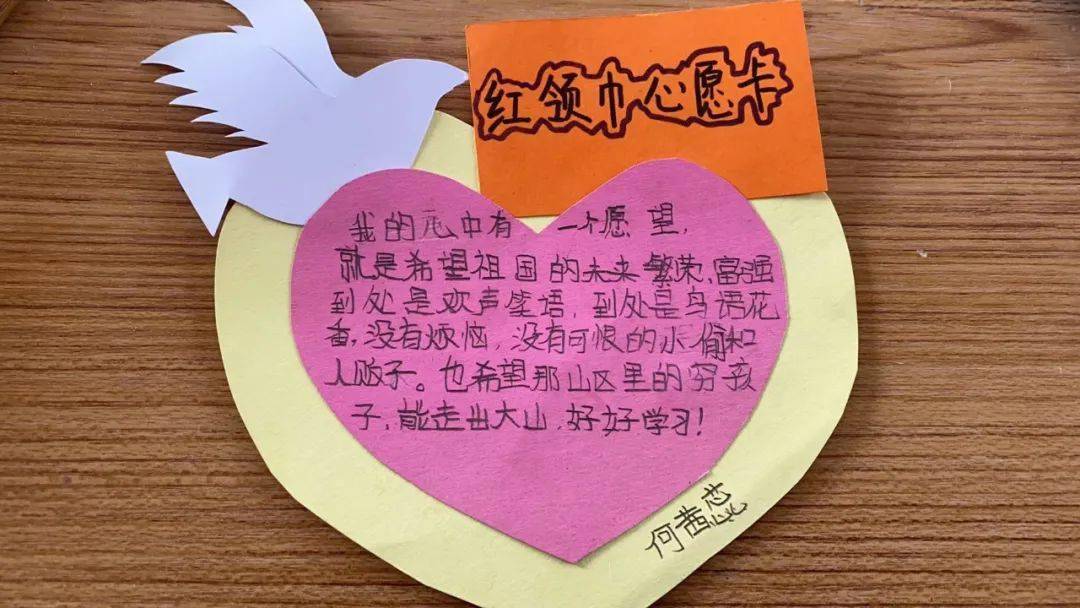 红领巾心愿卡
我的心中有一个愿望,
就是希望祖国的未来繁荣、富强
到处是欢声笑语,到处是鸟语花
香,没有烦恼,没有可恨的小偷和
人贩子。也希望那山区里的穷孩
子,能走出大山,好好学习!
何茜蕊